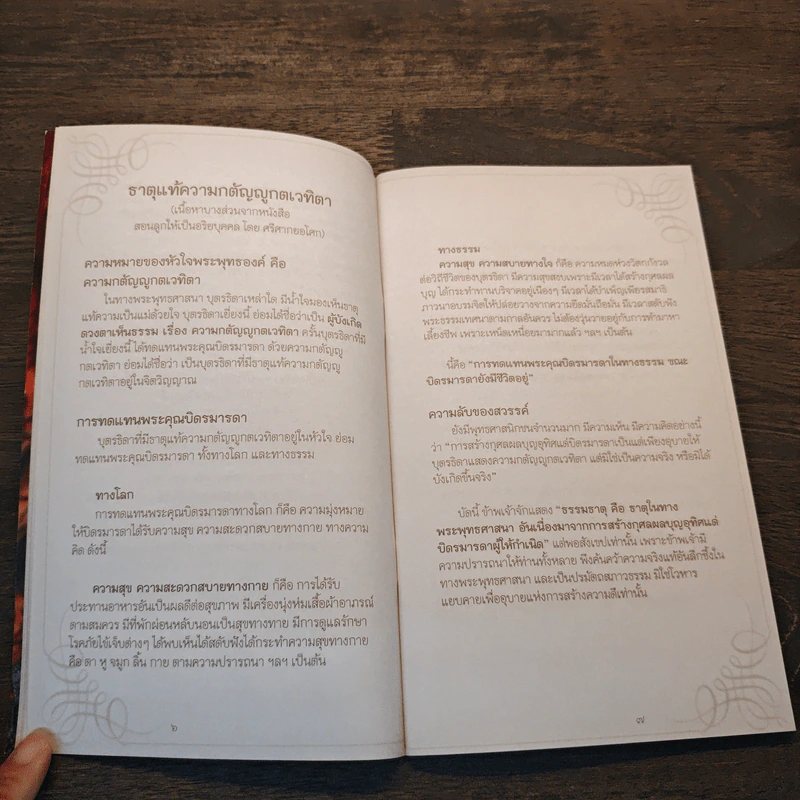 ธาตุแท้ความกตัญญูกตเวทิตา
(เนื้อหาบางส่วนจากหนังสือ
สอนลูกให้เป็นอริยบุคคล โดย ศรีศากยอโศก)
ความหมายของหัวใจพระพุทธองค์ คือ
ความกตัญญูกตเวทิตา
ในทางพระพุทธศาสนา บุตรธิดาเหล่าใด มีน้ำใจมองเห็นธาตุ
แท้ความเป็นแม่ด้วยใจ บุตรธิดาเยี่ยงนี้ ย่อมได้ชื่อว่าเป็น ผู้บังเกิด
ดวงตาเห็นธรรม เรื่อง ความกตัญญูกตเวทิตา ครั้นบุตรธิดาที่มี
น้ำใจเยี่ยงนี้ ได้ทดแทนพระคุณบิดรมารดา ด้วยความกตัญญู
กตเวทิตา ย่อมได้ชื่อว่า เป็นบุตรธิดาที่มีธาตุแท้ความกตัญญู
กตเวทิตาอยู่ในจิตวิญญาณ
การทดแทนพระคุณบิดรมารดา
บุตรธิดาที่มีธาตุแท้ความกตัญญูกตเวทิตาอยู่ในหัวใจ ย่อม
ทดแทนพระคุณบิดรมารดา ทั้งทางโลก และทางธรรม
ทางโลก
การทดแทนพระคุณบิดรมารดาทางโลก ก็คือ ความมุ่งหมาย
ให้บิดรมารดาได้รับความสุข ความสะดวกสบายทางกาย ทางความ
คิด ดังนี้
ความสุข ความสะดวกสบายทางกาย ก็คือ การได้รับ
ประทานอาหารอันเป็นผลดีต่อสุขภาพ มีเครื่องนุ่งห่มเสื้อผ้าอาภรณ์
ตามสมควร มีที่พักผ่อนหลับนอนเป็นสุขทางกาย มีการดูแลรักษา
โรคภัยไข้เจ็บต่างๆ ได้พบเห็นได้สดับฟังได้กระทำความสุขทางกาย
คือ ตา หู จมูก ลิ้น กาย ตามความปรารถนา ฯลฯ เป็นต้น
๖
ทางธรรม
ความสุข ความสบายทางใจ ก็คือ ความหมดห่วงวิตกกังวล
ต่อวิถีชีวิตของบุตรธิดา มีความสุขสงบเพราะมีเวลาได้สร้างกุศลผล
บุญ ได้กระทำทานบริจาคอยู่เนืองๆ มีเวลาได้บำเพ็ญเพียรสมาธิ
ภาวนาอบรมจิตให้ปล่อยวางจากความยึดมั่นถือมั่น มีเวลาสดับฟัง
พระธรรมเทศนาตามกาลอันควร ไม่ต้องวุ่นวายอยู่กับการทำมาหา
เลี้ยงชีพ เพราะเหน็ดเหนื่อยมามากแล้ว ฯลฯ เป็นต้น
นี้คือ “การทดแทนพระคุณบิดรมารดาในทางธรรม ขณะ
บิดรมารดายังมีชีวิตอยู่”
ความลับของสวรรค์
ยังมีพุทธศาสนิกชนจำนวนมาก มีความเห็น มีความคิดอย่างนี้
ว่า “การสร้างกุศลผลบุญอุทิศแด่บิดรมารดาเป็นแต่เพียงอุบายให้
บุตรธิดาแสดงความกตัญญูกตเวทิตา แต่มิใช่เป็นความจริง หรือมิได้
บังเกิดขึ้นจริง”
บัดนี้ ข้าพเจ้าจักแสดง “ธรรมธาตุ คือ ธาตุในทาง
พระพุทธศาสนา อันเนื่องมาจากการสร้างกุศลผลบุญอุทิศแด่
บิดรมารดาผู้ให้กำเนิด” แต่พอสังเขปเท่านั้น เพราะข้าพเจ้ามี
ความปรารถนาให้ท่านทั้งหลาย พึงค้นคว้าความจริงแท้อันลึกซึ้งใน
ทางพระพุทธศาสนา และเป็นปรมัตถสภาวธรรม มิใช่โวหาร
แยบคายเพื่ออุบายแห่งการสร้างความดีเท่านั้น
๗